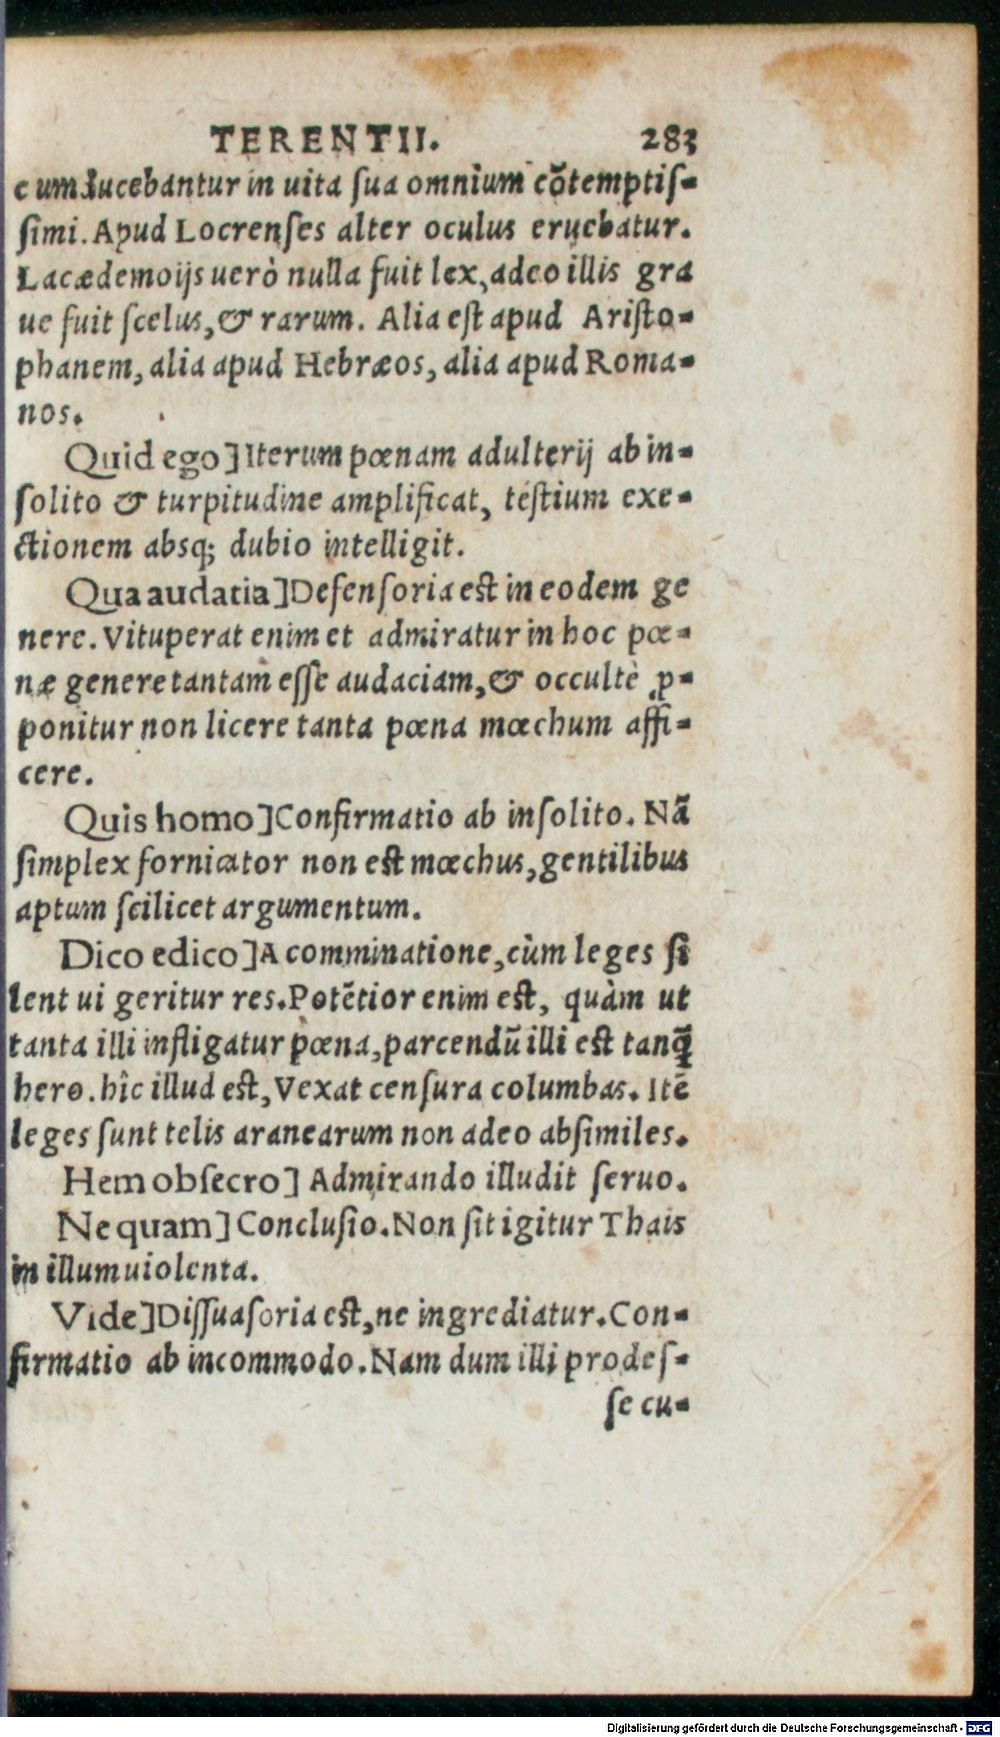 TERENTII. 283
c umducebantur in uita sua omnium cõtemptiſ-
ſimi. Apud Locrenſes alter oculus eruebatur.
Lacædemoijs uerò nulla fuit lex, adeo illis gra
ue fuit ſcelus, & rarum. Alia eſt apud Ariſto-
phanem, alia apud Hebræos, alia apud Roma-
nos.
Quid ego] Iterum pœnam adulterij ab in-
ſolito & turpitudine amplificat, teſtium exe-
ctionem absq; dubio intelligit.
Qua audatia] Defenſoria eſt in eodem ge
nere. Vituperat enim et admiratur in hoc pœ-
næ genere tantam eſſe audaciam, & occultè ꝓ-
ponitur non licere tanta pœna mœchum affi-
cere.
Quis homo] Confirmatio ab inſolito. Nã
ſimplex fornicator non eſt mœchus, gentilibus
aptum ſcilicet argumentum.
Dico edico] A comminatione, cùm leges ſi
lent ui geritur res. Potẽtior enim eſt, quàm ut
tanta illi infligatur pœna, parcendũ illi eſt tanq̃
hero. hîc illud eſt, Vexat cenſura columbas. Itẽ
leges ſunt telis aranearum non adeo abſimiles.
Hem obſecro] Admirando illudit ſeruo.
Ne quam] Concluſio. Non ſit igitur Thais
in illum uiolenta.
Vide] Diſſuaſoria eſt, ne ingrediatur. Con-
firmatio ab incommodo. Nam dum illi prodeſ-
ſe cu-
Digitalisierung gefördert durch die Deutsche Forschungsgemeinschaft - DFG